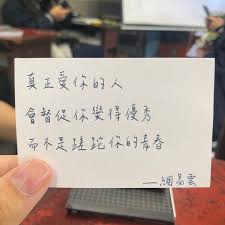 真正愛你的人
會督促你變得優秀
而不是蹉跎你的青春
——網易雲